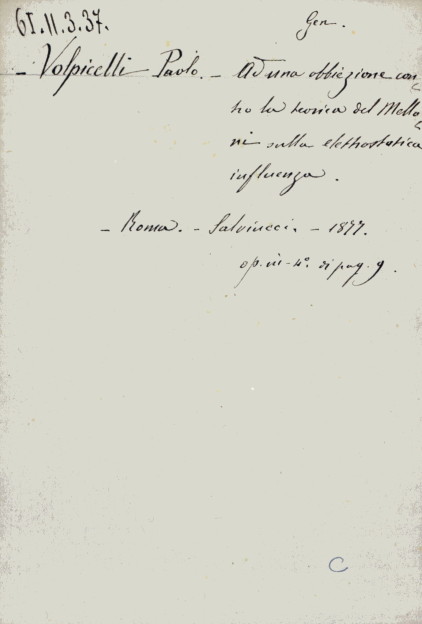 61.11.3.37.
Gen.
- Volpicelli Paolo. - Ad una obbiezione con
tro la teorica del Mello
ni sulla elettrostatica
influenza.
- Roma. - Salviucci. - 1877.
op. in-4º. di pag. 9.
C